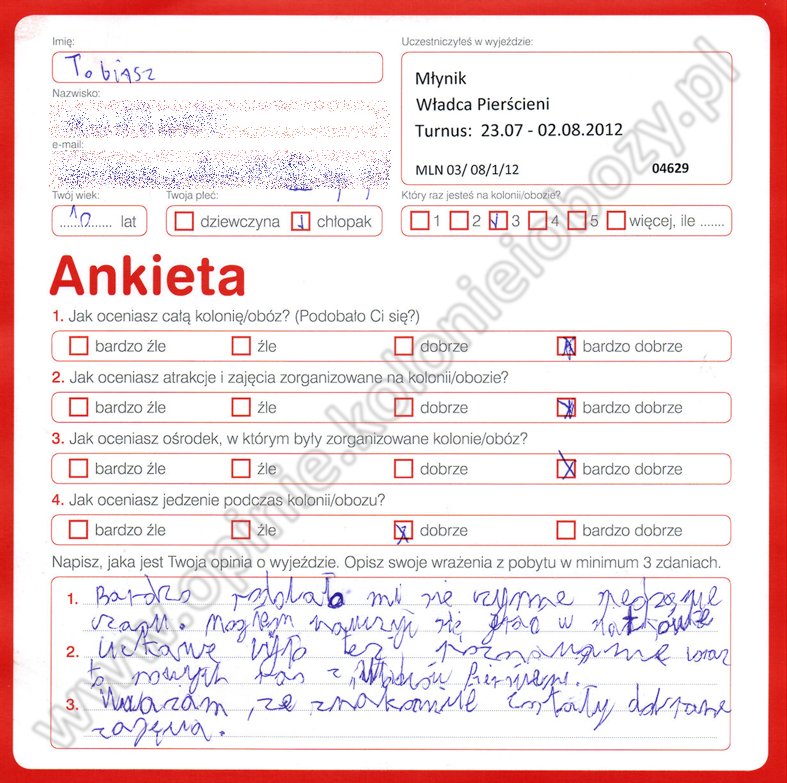 Imię:
Uczestniczyłeś w wyjeździe:
Tobiasz
Młynik
Władca Pierścieni
Turnus: 23.07 - 02.08.2012
MLN 03/ 08/1/12
04629
Nazwisko:
e-mail:
Twój wiek:
Twoja płeć:
Który raz jesteś na kolonii/obozie?
10 lat
dziewczyna chłopak
1 2 3 4 5 więcej, ile .......
Ankieta
1. Jak oceniasz całą kolonię/obóz? (Podobało Ci się?)
bardzo źle źle dobrze bardzo dobrze
2. Jak oceniasz atrakcje i zajęcia zorganizowane na kolonii/obozie?
bardzo źle źle dobrze bardzo dobrze
3. Jak oceniasz ośrodek, w którym były zorganizowane kolonie/obóz?
bardzo źle źle dobrze bardzo dobrze
4. Jak oceniasz jedzenie podczas kolonii/obozu?
bardzo źle źle dobrze bardzo dobrze
Napisz, jaka jest Twoja opinia o wyjeździe. Opisz swoje wrażenia z pobytu w minimum 3 zdaniach.
1. Bardzo podobało mi się
czasu. Mogłem nauczyć się grać w
2. Ciekawe było też
nowych ras z
3. Uważam, że dobrane
zajęcia.
www.opinie.kolonieiobozy.pl